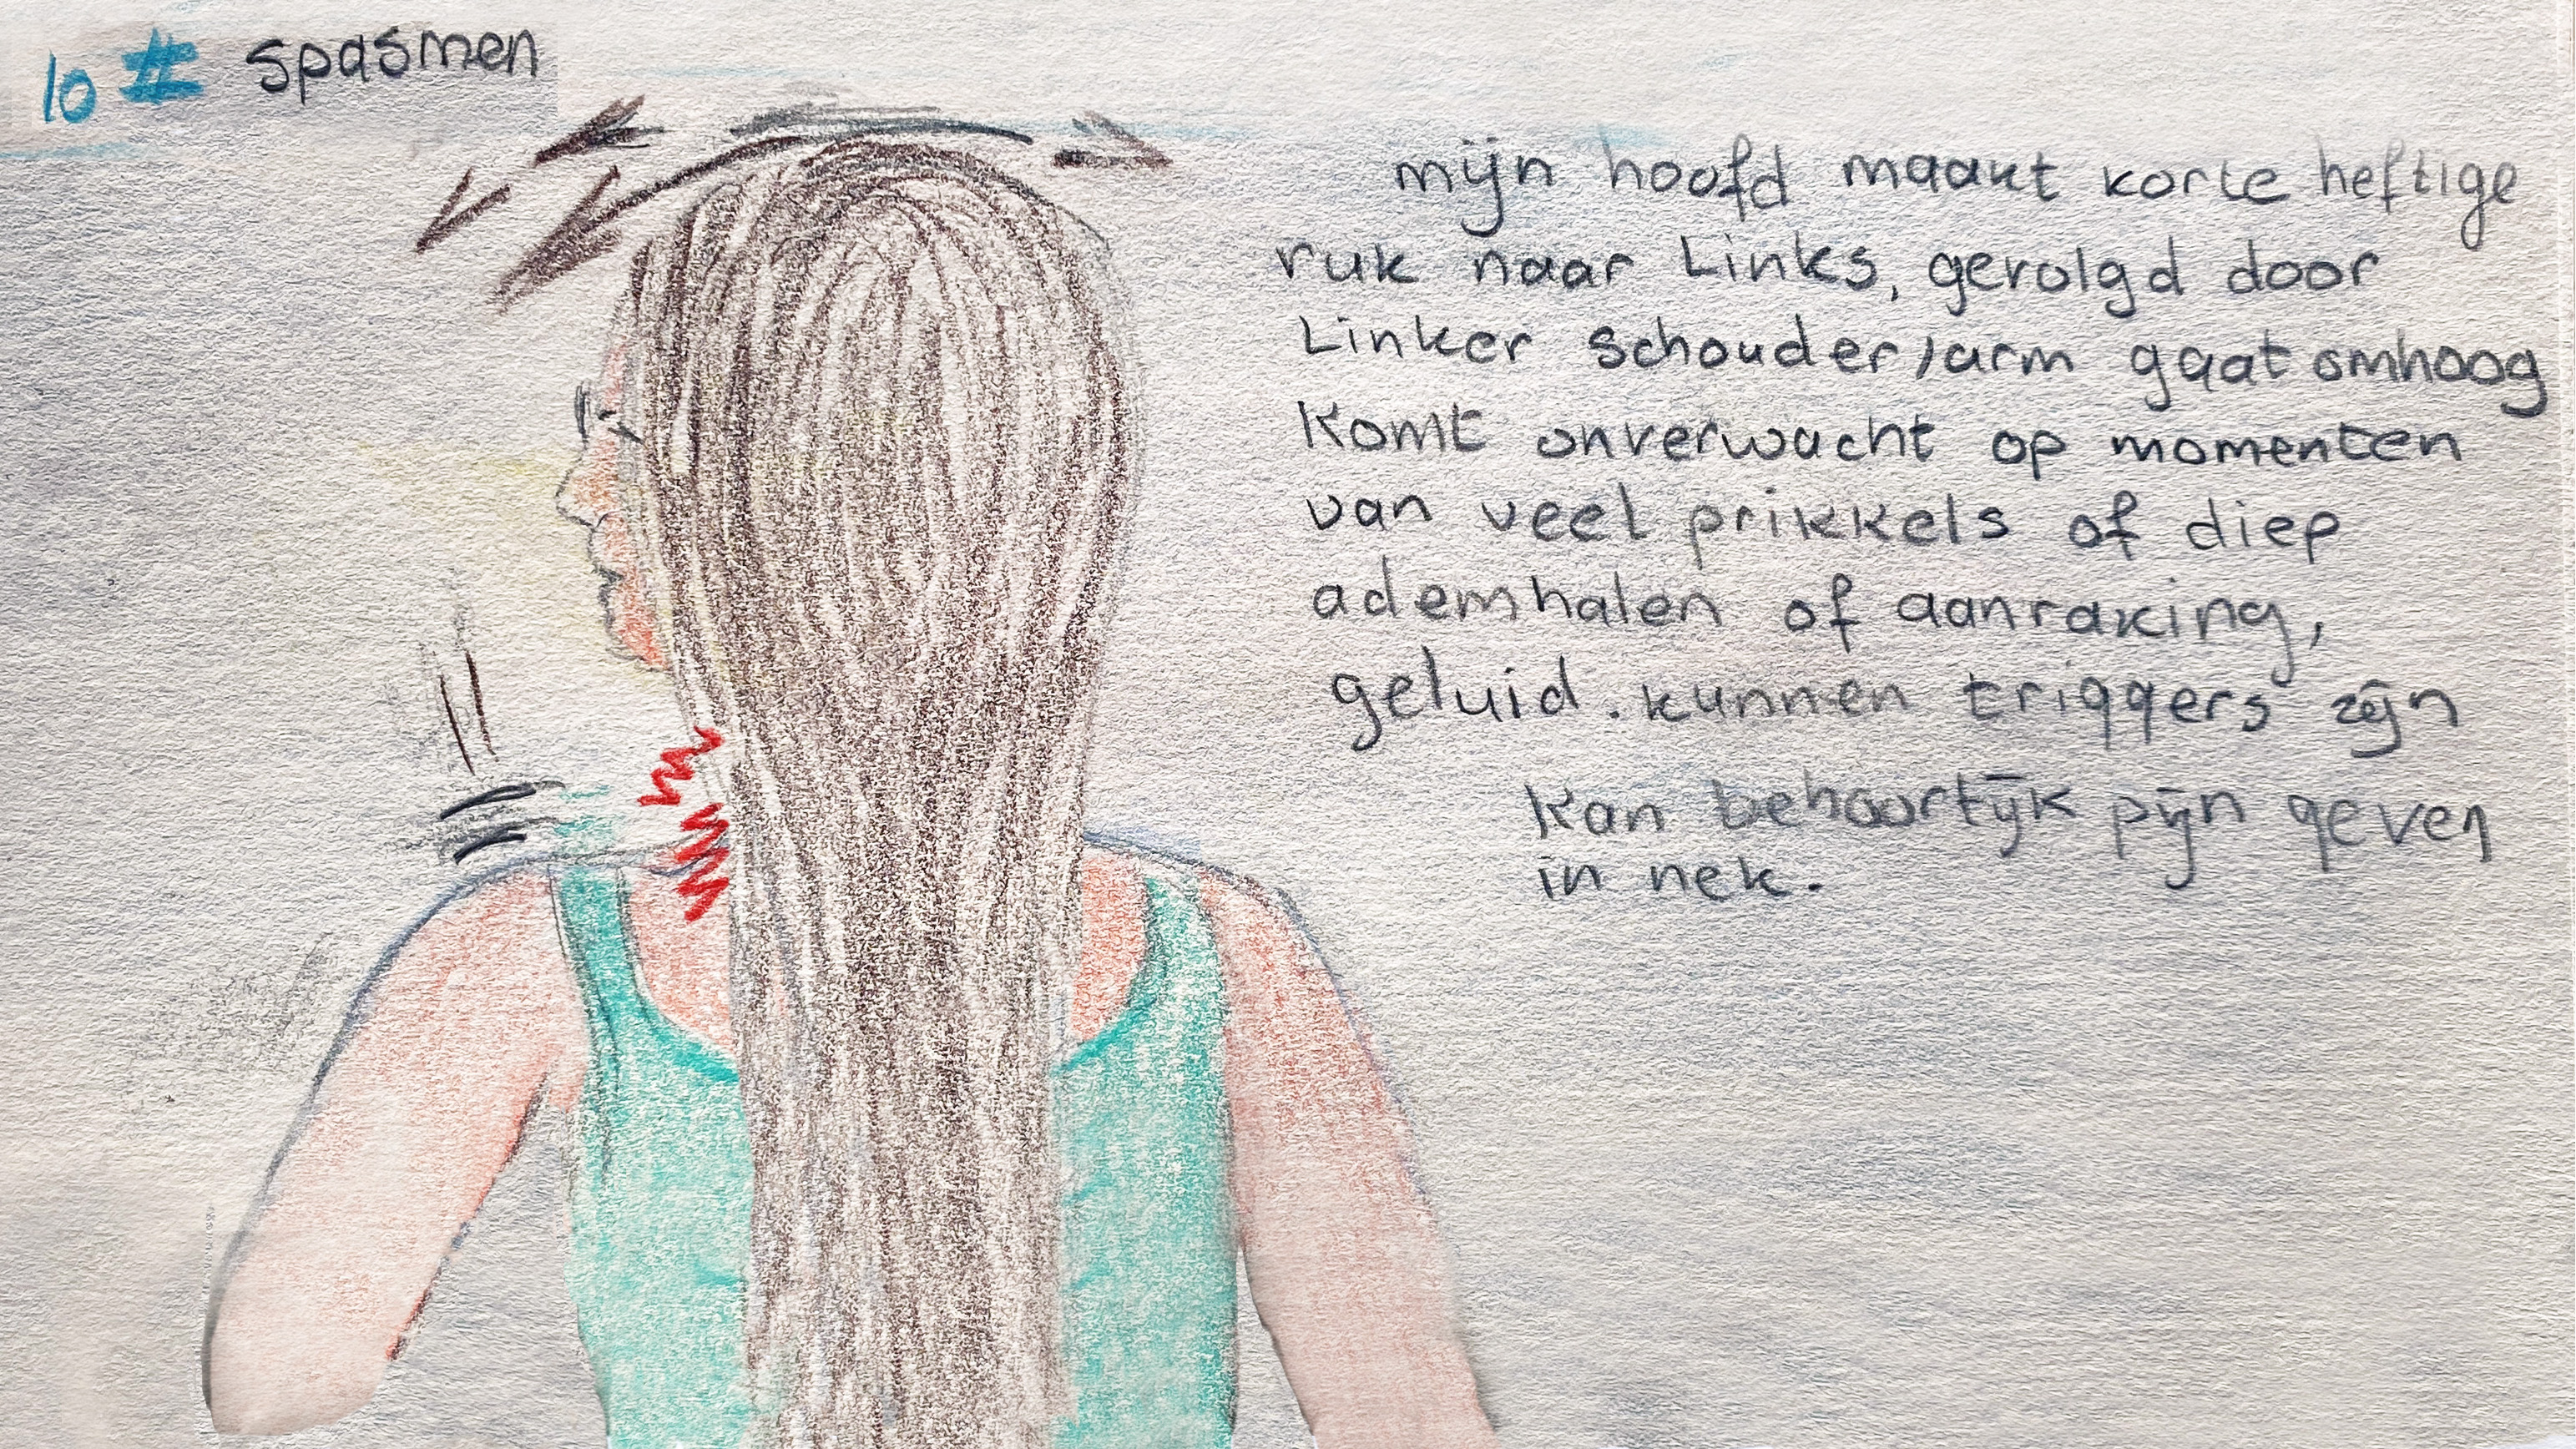 10 # spasmen
mijn hoofd maakt korte heftige
ruk naar Links, gevolgd door
Linker schouder/arm gaat omhoog
Komt onverwacht op momenten
van veel prikkels of diep
ademhalen of aanraking,
geluid. kunnen triggers zijn
Kan behoorlijk pijn geven
in nek.